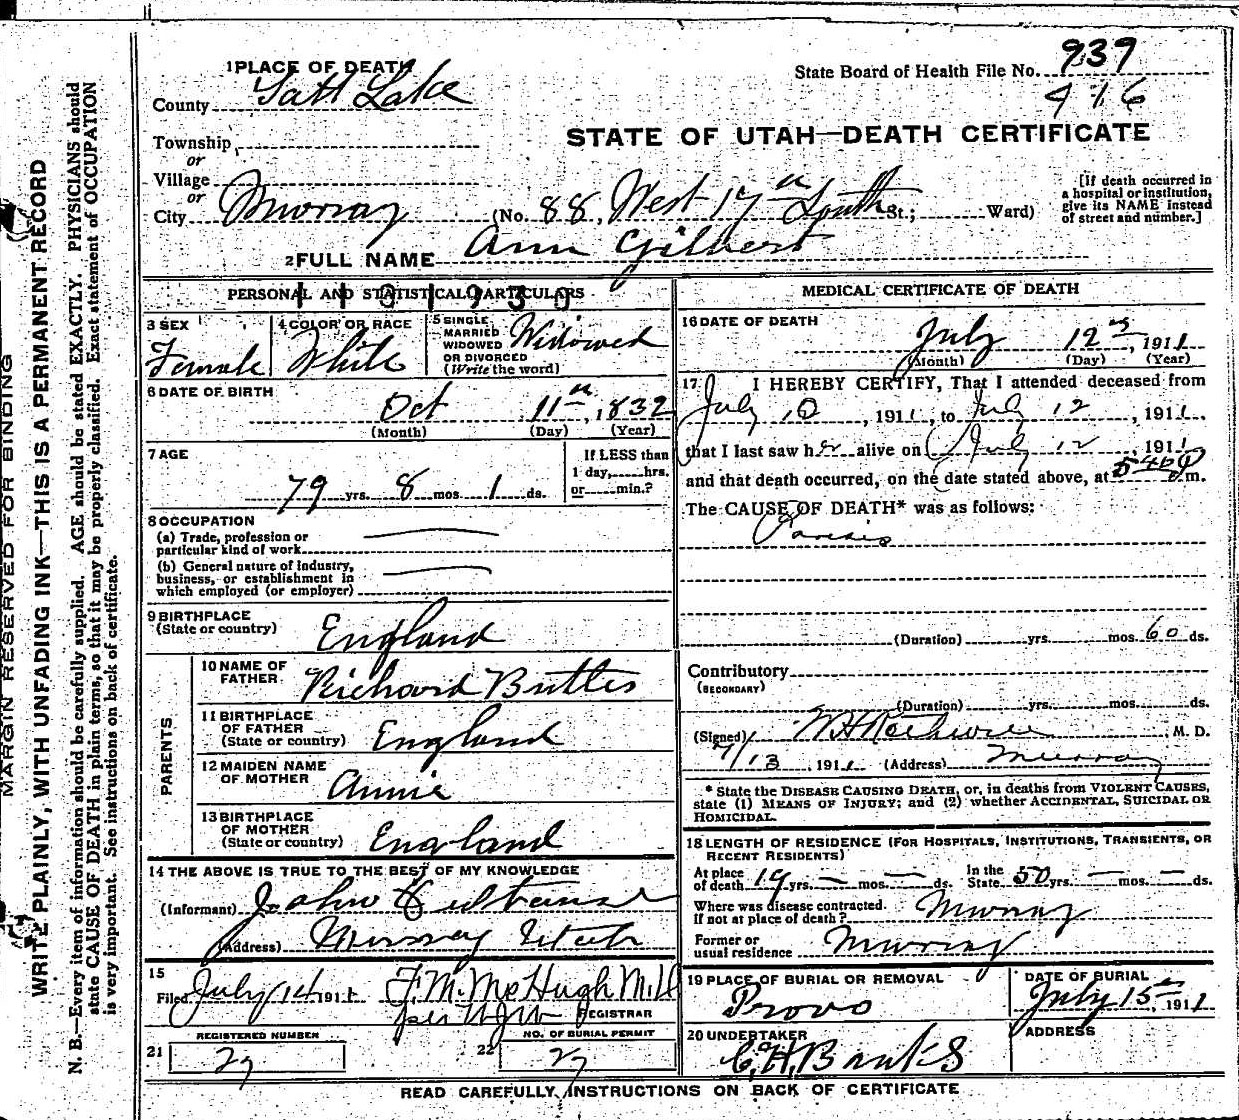 MARGIN RESERVED FOR BINDING
WRITE PLAINLY, WITH UNFADING INK—THIS IS A PERMANENT RECORD
N. B.—Every item of information should be carefully supplied. AGE should be stated EXACTLY. PHYSICIANS should
state CAUSE OF DEATH in plain terms, so that it may be properly classified. Exact statement of OCCUPATION
is very important. See instructions on back of certificate.
1 PLACE OF DEATH
County Salt Lake
Township
or
Village
or
City Murray (No. 88, West 17th South St.; Ward)
State Board of Health File No. 939
416
STATE OF UTAH—DEATH CERTIFICATE
[If death occurred in
a hospital or institution,
give its NAME instead
of street and number.]
2 FULL NAME Ann Gilbert
PERSONAL AND STATISTICAL PARTICULARS
1191930
3 SEX
Female
4 COLOR OR RACE
White
5 SINGLE
MARRIED
WIDOWED
OR DIVORCED
(Write the word)
Widowed
6 DATE OF BIRTH
Oct 11th, 1832
(Month) (Day) (Year)
7 AGE
79 yrs. 8 mos. 1 ds.
If LESS than
1 day, hrs.
or min.?
8 OCCUPATION
(a) Trade, profession or
particular kind of work
(b) General nature of Industry,
business, or establishment in
which employed (or employer)
9 BIRTHPLACE
(State or country) England
PARENTS
10 NAME OF
FATHER Richard
11 BIRTHPLACE
OF FATHER
(State or country) England
12 MAIDEN NAME
OF MOTHER Annie
13 BIRTHPLACE
OF MOTHER
(State or country) England
14 THE ABOVE IS TRUE TO THE BEST OF MY KNOWLEDGE
(Informant) John
(Address) Murray Utah
15
Filed July 14 1911 F. M. McHugh M.D.
per REGISTRAR
REGISTERED NUMBER
21 29
NO. OF BURIAL PERMIT
22 27
MEDICAL CERTIFICATE OF DEATH
16 DATE OF DEATH
July 12th, 1911
(Month) (Day) (Year)
17 I HEREBY CERTIFY, That I attended deceased from
July 10, 1911, to July 12, 1911.
that I last saw her alive on July 12, 1911
and that death occurred, on the date stated above, at m.
The CAUSE OF DEATH* was as follows:
(Duration) yrs. mos. 60 ds.
Contributory
(SECONDARY)
(Duration) yrs. mos. ds.
(Signed) M. D.
7/13, 1911 (Address) Murray
* State the DISEASE CAUSING DEATH, or, in deaths from VIOLENT CAUSES,
state (1) MEANS OF INJURY; and (2) whether ACCIDENTAL, SUICIDAL OR
HOMICIDAL.
18 LENGTH OF RESIDENCE (FOR HOSPITALS, INSTITUTIONS, TRANSIENTS, OR
RECENT RESIDENTS)
At place
of death 19 yrs. — mos. — ds. In the
State 50 yrs. — mos. — ds.
Where was disease contracted.
If not at place of death? Murray
Former or
usual residence Murray
19 PLACE OF BURIAL OR REMOVAL
Provo
DATE OF BURIAL
July 15th, 1911
20 UNDERTAKER
C. H. Banks
ADDRESS
READ CAREFULLY INSTRUCTIONS ON BACK OF CERTIFICATE